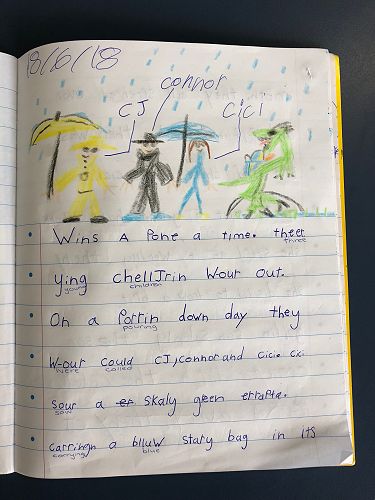 18/6/18
connor
CJ
CiCi
Wins A Pone a time. theer
three
ying chellJrin Wour out.
young children
On a Porrin down day they
pouring
Wour Could CJ, connor and Cici. Ci.
were called
sour a er skaly green errapta.
saw
carringn a blluw staty bag in its
carrying blue